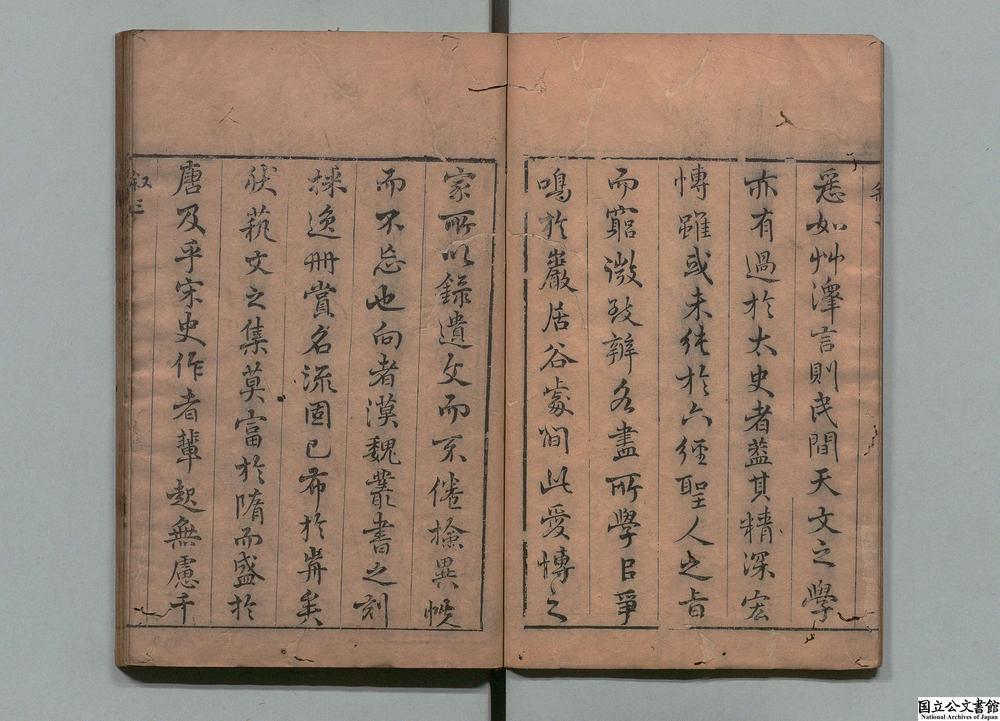 悉如艸澤言則民間天文之學
亦有過於太史者葢其精深宏
博雖或未純於六經聖人之旨
而窮微致辨各盡所學㠯爭
鳴於巖居谷處間此愛博之
家所以錄遺文而不倦撿異帙
而不忘也向者漢魏叢書之刻
採逸冊賞名流固已布於
矣
秇文之集莫富於隋而盛於
唐及乎宋史作者輩起無慮千
叙三
国立公文書館
National Archives of Japan